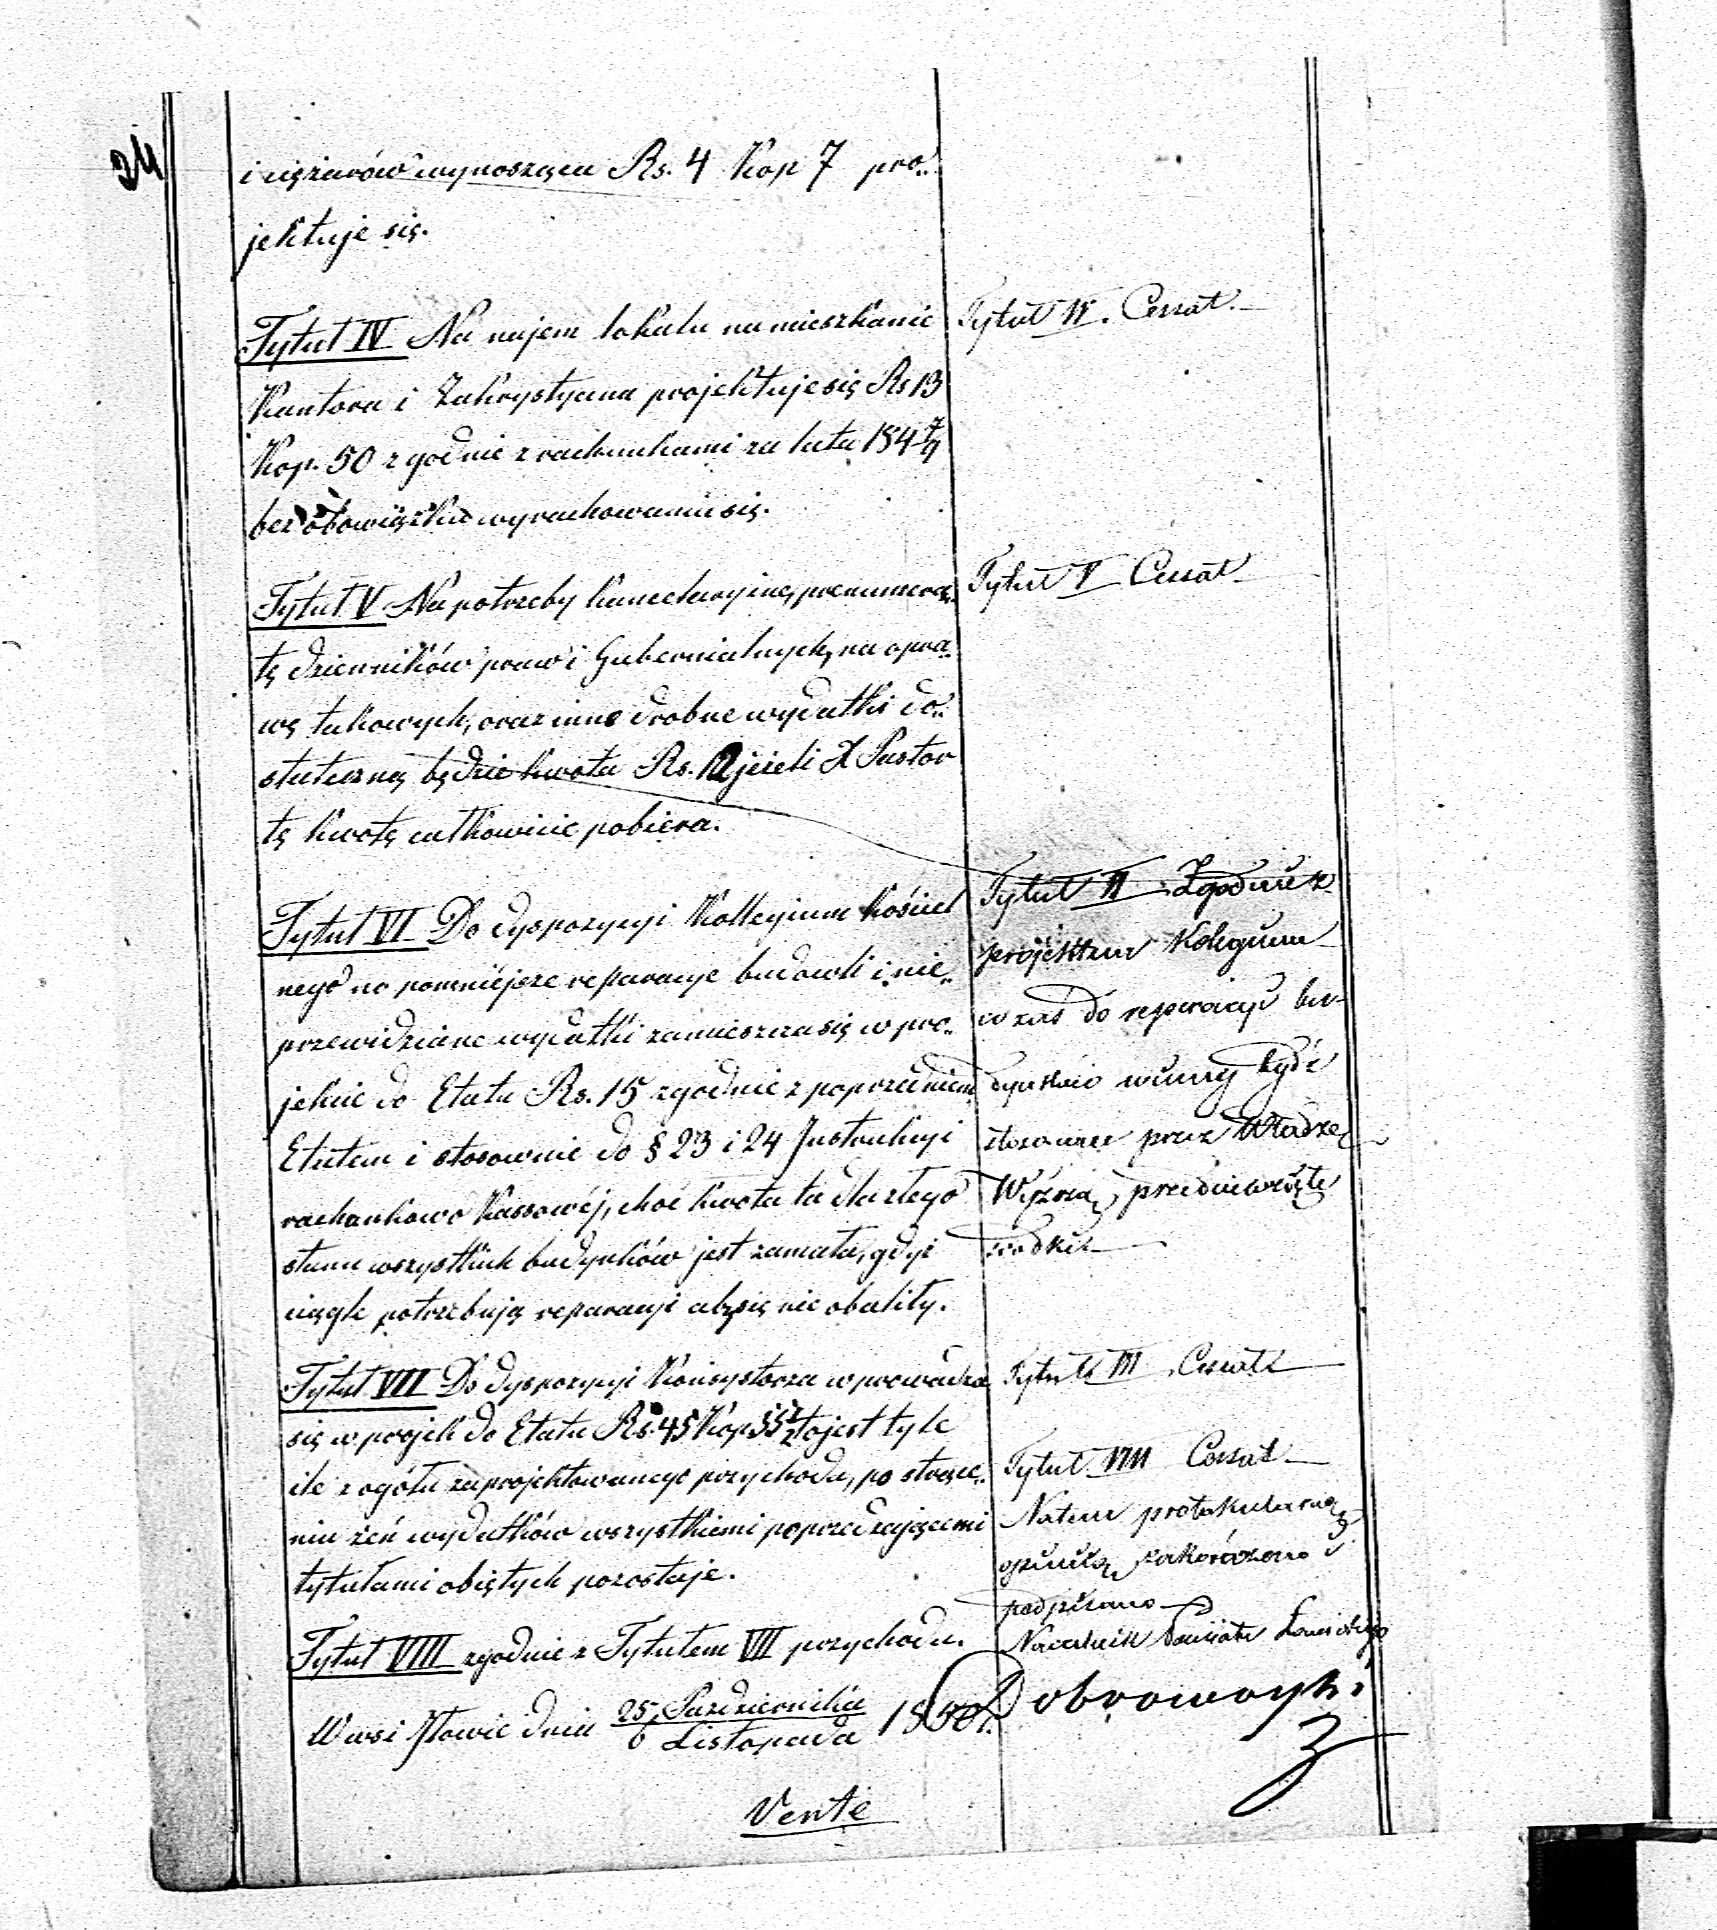 24
i ciężarów wynosząca Rs. 4 Kop 7 pro„
jektuje się.
Tytuł IV Na najem lokalu na mieszkanie
Kantora i Zakrystyana projektuje się Rs 13
Kop. 50 zgodnie z rachunkami za lata 184 7/9
bez obowiązku wyrachowania się.
Tytuł V Na potrzeby kancelaryine, prenumera„
tę dzienników praw i Gubernialnych, na opra„
wę takowych, oraz inne drobne wydatki do„
stateczną będzie kwota Rs. 12 jeżeli X Pastor
tę kwotę całkowicie pobiera.
Tytuł VI Do dyspozycyi Kollegium Kościel
nego na pomniéjsze reparacye budowli i nie„
przewidziane wydatki zamieszcza się w pro„
jekcie do Etatu Rs. 15 zgodnie z poprzednim
Etatem i stosownie do § 23 i 24 Instrukcyi
rachunkowo Kassowéj, choć kwota ta dla złego
stanu wszystkich budynków jest zamała, gdyż
ciągle potrzebują reparacyi aby się nie obaliły.
Tytuł VII Do dyspozycyi Konsystorza wprowadza
się w projek do Etatu Rs. 45 Kop 55½ to jest tyle
ile z ogółu zaprojektowanego przychodu, po strące„
niu zeń wydatków wszystkiemi poprzedzającemi
tytułami objętych pozostaje.
Tytuł VIII zgodnie z Tytułem VII przychodu.
W wsi Iłowie dnia 25 Października / 6 Listopada 1850 r.
Verte
Tytuł IV. Cessat.
Tytuł V Cessat
Tytuł VI Zgodnie z
projektem Kolegium
w zaś do reperacyi bu-
dynków winny bydź
stosowne przez Władzę
Wyższą przedsięwzięte
srodki
Tytuł VII Cessat
Tytuł VIII Cessat
Na tem protokularną
opinią zakończono i
podpisano
Naczelnik Powiatu
Dobrowolski